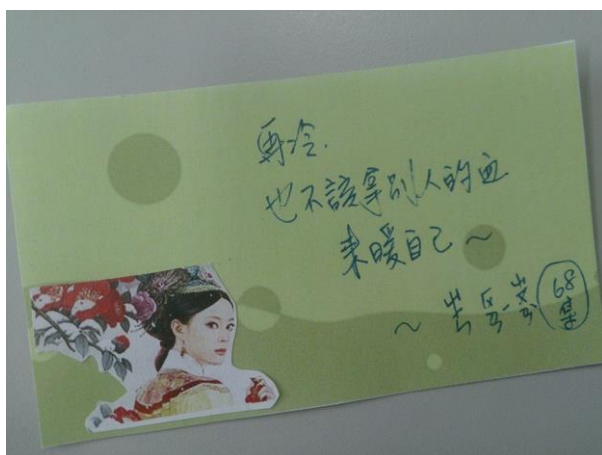 再冷.
也不該拿別人的血
來暖自己～
～
68集